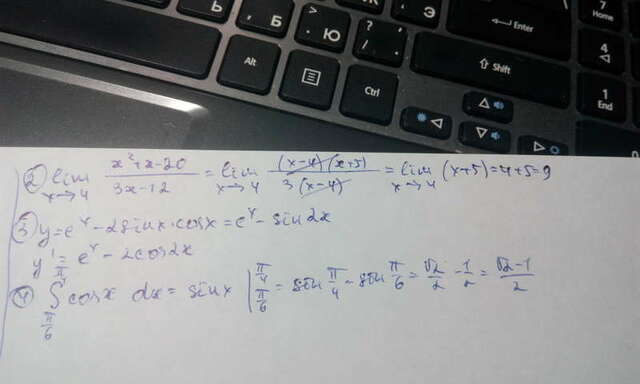 Ь
Б
Ю
Э
>
.
?
,
/
.
Enter
7
Home
4
Shift
Alt
Ctrl
1
End
② lim x→4 x²+x-20 / 3x-12 = lim x→4 (x-4)(x+5) / 3(x-4) = lim x→4 (x+5) = 4+5=9
③ y=eˣ-2sinx·cosx=eˣ-sin2x
y'=eˣ-2cos2x
④ ∫ π/6 π/4 cosx dx= sinx | π/6 π/4 = sin π/4 - sin π/6 = √2/2 - 1/2 = √2-1 / 2